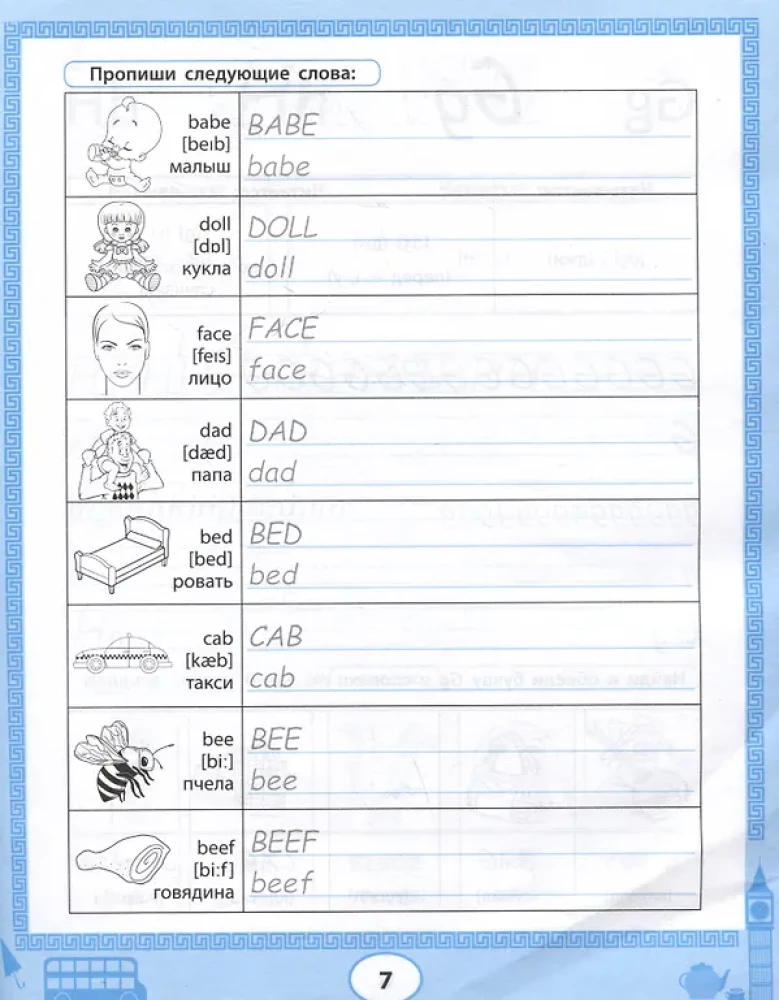 Пропиши следующие слова:
babe
[beɪb]
малыш
BABE
babe
doll
[dɒl]
кукла
DOLL
doll
face
[feɪs]
лицо
FACE
face
dad
[dæd]
папа
DAD
dad
bed
[bed]
ровать
BED
bed
cab
[kæb]
такси
CAB
cab
bee
[bi:]
пчела
BEE
bee
beef
[bi:f]
говядина
BEEF
beef
7